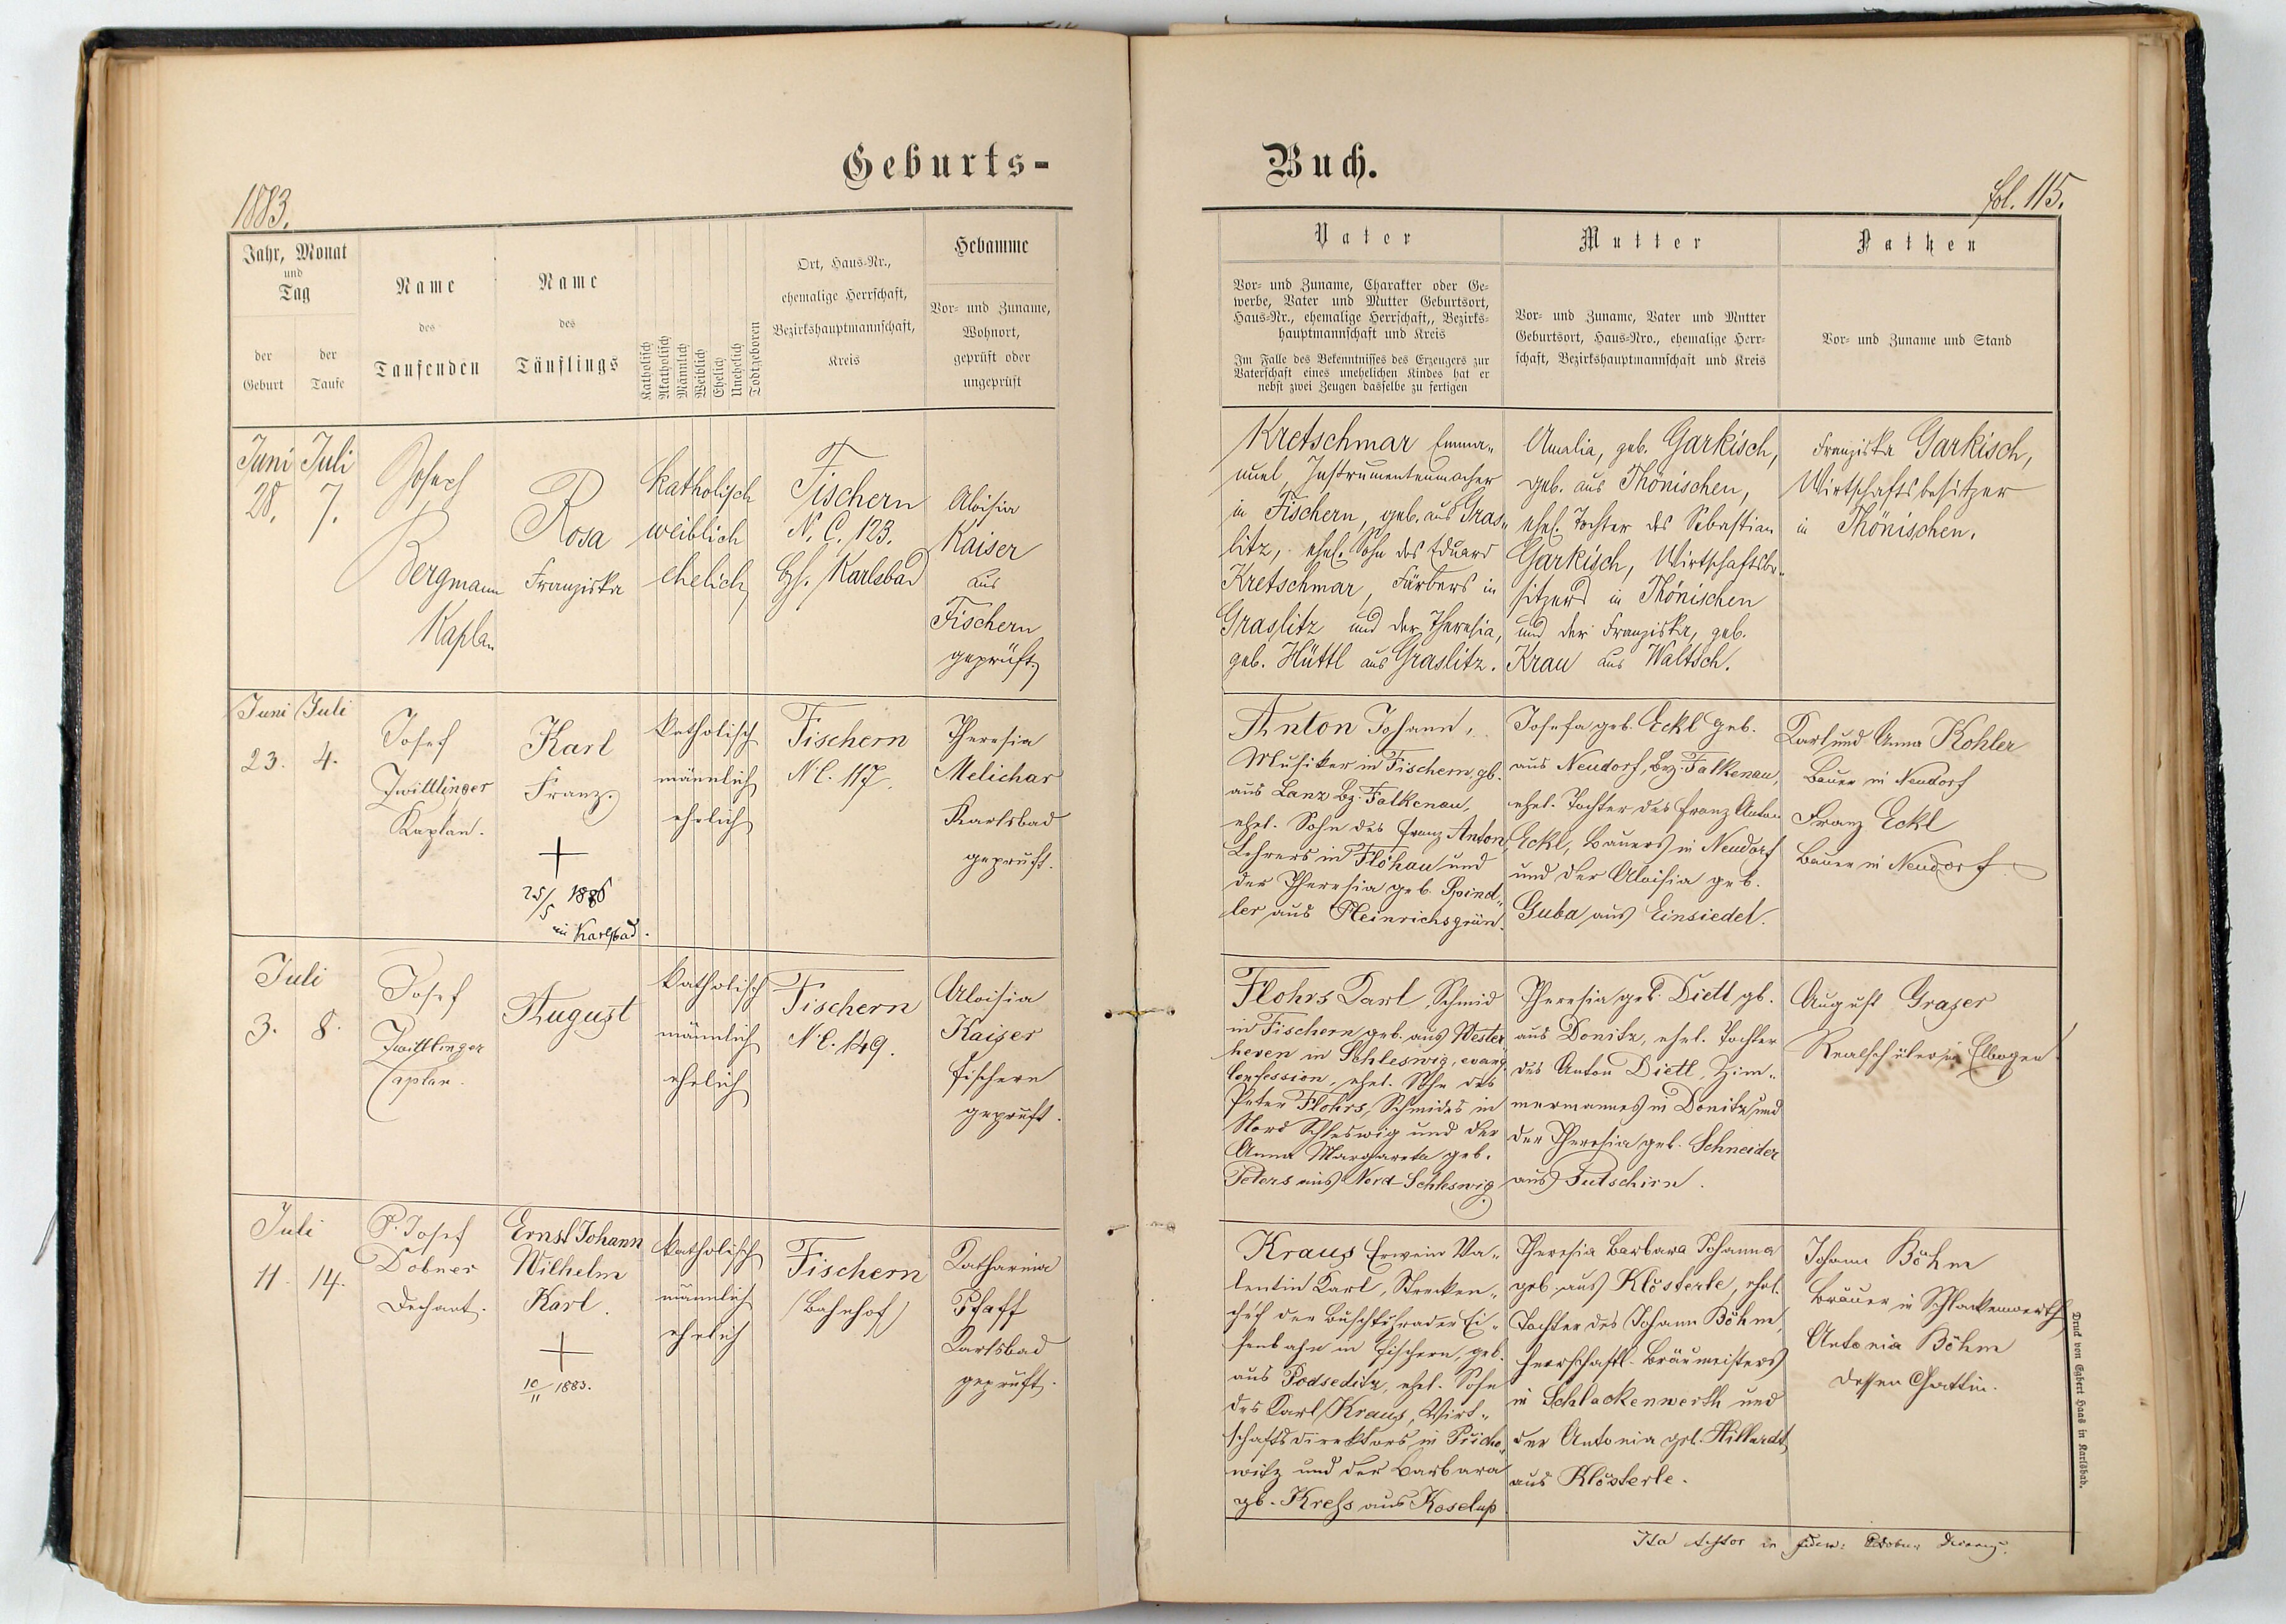 Geburts-
1883.
Jahr, Monat
und
Tag
der
Geburt
der
Taufe
Name
des
Taufenden
Name
des
Täuflings
Katholisch
Akatholisch
Männlich
Weiblich
Ehelich
Unehelich
Todtgeboren
Ort, Haus-Nr.,
ehemalige Herrschaft,
Bezirkshauptmannschaft,
Kreis
Hebamme
Vor- und Zuname,
Wohnort,
geprüft oder
ungeprüft
Juni
28.
Juli
7.
Josef
Bergmann
Kaplan
Rosa
Franziska
katholisch
weiblich
ehelich
Fischern
N. C. 123.
Bzh. Karlsbad
Aloisia
Kaiser
aus
Fischern
geprüft
Juni
23.
Juli
4.
Josef
Zwittlinger
Kaplan.
Karl
Franz
+
25/5 1886
in Karlsbad.
katholisch
männlich
ehelich
Fischern
N C. 117.
Theresia
Melichar
Karlsbad
geprüft.
Juli
3. 8.
Josef
Zwittlinger
Caplan.
August
katholisch
männlich
ehelich
Fischern
N C. 149.
Aloisia
Kaiser
Fischern
geprüft.
Juli
11. 14.
P. Josef
Dobner
Dechant.
Ernst Johann
Wilhelm
Karl.
+
10/11 1883.
katholisch
männlich
ehelich
Fischern
(Bahnhof)
Katharina
Pfaff
Karlsbad
geprüft.
Buch.
fol. 115.
Vater
Vor- und Zuname, Charakter oder Ge-
werbe, Vater und Mutter Geburtsort,
Haus-Nr., ehemalige Herrschaft,, Bezirks-
hauptmannschaft und Kreis
Im Falle des Bekenntnisses des Erzeugers zur
Vaterschaft eines unehelichen Kindes hat er
nebst zwei Zeugen dasselbe zu fertigen
Mutter
Vor- und Zuname, Vater und Mutter
Geburtsort, Haus-Nro., ehemalige Herr-
schaft, Bezirkshauptmannschaft und Kreis
Pathen
Vor- und Zuname und Stand
Kretschmar Emma-
nuel Instrumentenmacher
in Fischern, geb. aus Gras-
litz, ehel. Sohn des Eduard
Kretschmar, Färbers in
Graslitz und der Theresia,
geb. Hüttl aus Graslitz.
Amalia, geb. Garkisch,
geb. aus Thönischen,
ehel. Tochter des Sebastian
Garkisch, Wirtschaftsbe-
sitzers in Thönischen
und der Franziska, geb.
Krau aus Waltsch.
Franziska Garkisch,
Wirtschaftsbesitzer
in Thönischen.
Anton Johann,
Musiker in Fischern, gb.
aus Lanz Bz. Falkenau,
ehel. Sohn des Franz Anton
Lehrers in Flöhau und
der Theresia geb. Spind-
ler aus Heinrichsgrün.
Josefa geb. Eckl geb.
aus Neudorf, Bz. Falkenau,
ehel. Tochter des Franz Anton
Eckl, Bauers in Neudorf
und der Aloisia geb.
Guba aus Einsiedel.
Karl und Anna Kohler
Bauer in Neudorf
Franz Eckl
Bauer in Neudorf
Flohrs Karl, Schmid
in Fischern geb. aus Wester-
heven in Schleswig, evang.
Confession, ehel. Sohn des
Peter Flohrs, Schmides in
Nord Schleswig und der
Anna Margareta geb.
Peters aus Nord-Schleswig
Theresia geb. Dietl, gb.
aus Donitz, ehel. Tochter
des Anton Dietl, Zim-
mermannes in Donitz und
der Theresia geb. Schneider
aus Putschirn.
August Graser
Realschüler in Elbogen
Kraus Erwein Va-
lentin Karl, Strecken-
chef der Buschtěhrader Ei-
senbahn in Fischern, geb.
aus Podseditz, ehel. Sohn
des Karl Kraus, Wirt-
schaftsdirektors in Přicho-
witz und der Barbara
gb. Kreß aus Koselup
Theresia Barbara Johanna
geb. aus Klösterle, ehel.
Tochter des Johann Böhm,
herrschaftl. Bräumeisters
in Schlackenwerth und
der Antonia geb. Hillardt
aus Klösterle.
Johann Böhm
Bräuer in Schlackenwerth
Antonia Böhm
dessen Gattin.
Ita testor in fidem: Dobner
Druck von Egbert Haas in Karlsbad.